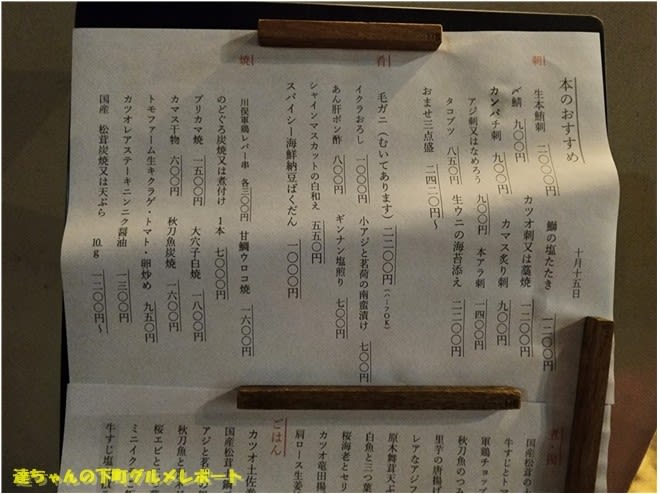 本のおすすめ
十月十五日
刺
生本鮪刺 二〇〇〇円
鰤の塩たたき 一二〇〇円
〆鯖 九〇〇円
カツオ刺又は藁焼 一二〇〇円
カンパチ刺 九〇〇円
カマス炙り刺 九〇〇円
アジ刺又はなめろう 九〇〇円
本アラ刺 一四〇〇円
タコブツ 八五〇円
生ウニの海苔添え 二二〇〇円
おませ三点盛 二四二〇円〜
肴
毛ガニ(むいてあります) 二二〇〇円(ハーフOK)
イクラおろし 一〇〇〇円
小アジと茗荷の南蛮漬け 七〇〇円
あん肝ポン酢 八〇〇円
ギンナン塩煎り 七〇〇円
シャインマスカットの白和え 五五〇円
スパイシー海鮮納豆ばくだん 一〇〇〇円
焼
川俣軍鶏レバー串 各三〇〇円
甘鯛ウロコ焼 一六〇〇円
のどぐろ炭焼又は煮付け 1本 七〇〇〇円
ブリカマ焼 一五〇〇円
大穴子白焼 一八〇〇円
カマス干物 六〇〇円
秋刀魚炭焼 一六〇〇円
トモファーム生キクラゲ・トマト・卵炒め 九五〇円
カツオレアステーキニンニク醤油 一三〇〇円
国産 松茸炭焼又は天ぷら 10g 一二〇〇円〜
煮・揚
国産松
牛すじとト
軍鶏チョップ
秋刀魚のつ
里芋の唐揚げ
レアなアジフ
原木舞茸天ぷ
白魚と三つ葉
桜海老とセリ
カツオ竜田揚
肩ロース生姜
ごはん
カツオ土佐巻
国産松茸
アジと茗
秋刀魚と
秋刀魚
桜エビと
ミニイク
牛すじ塩
達ちゃんの下町グルメレポート